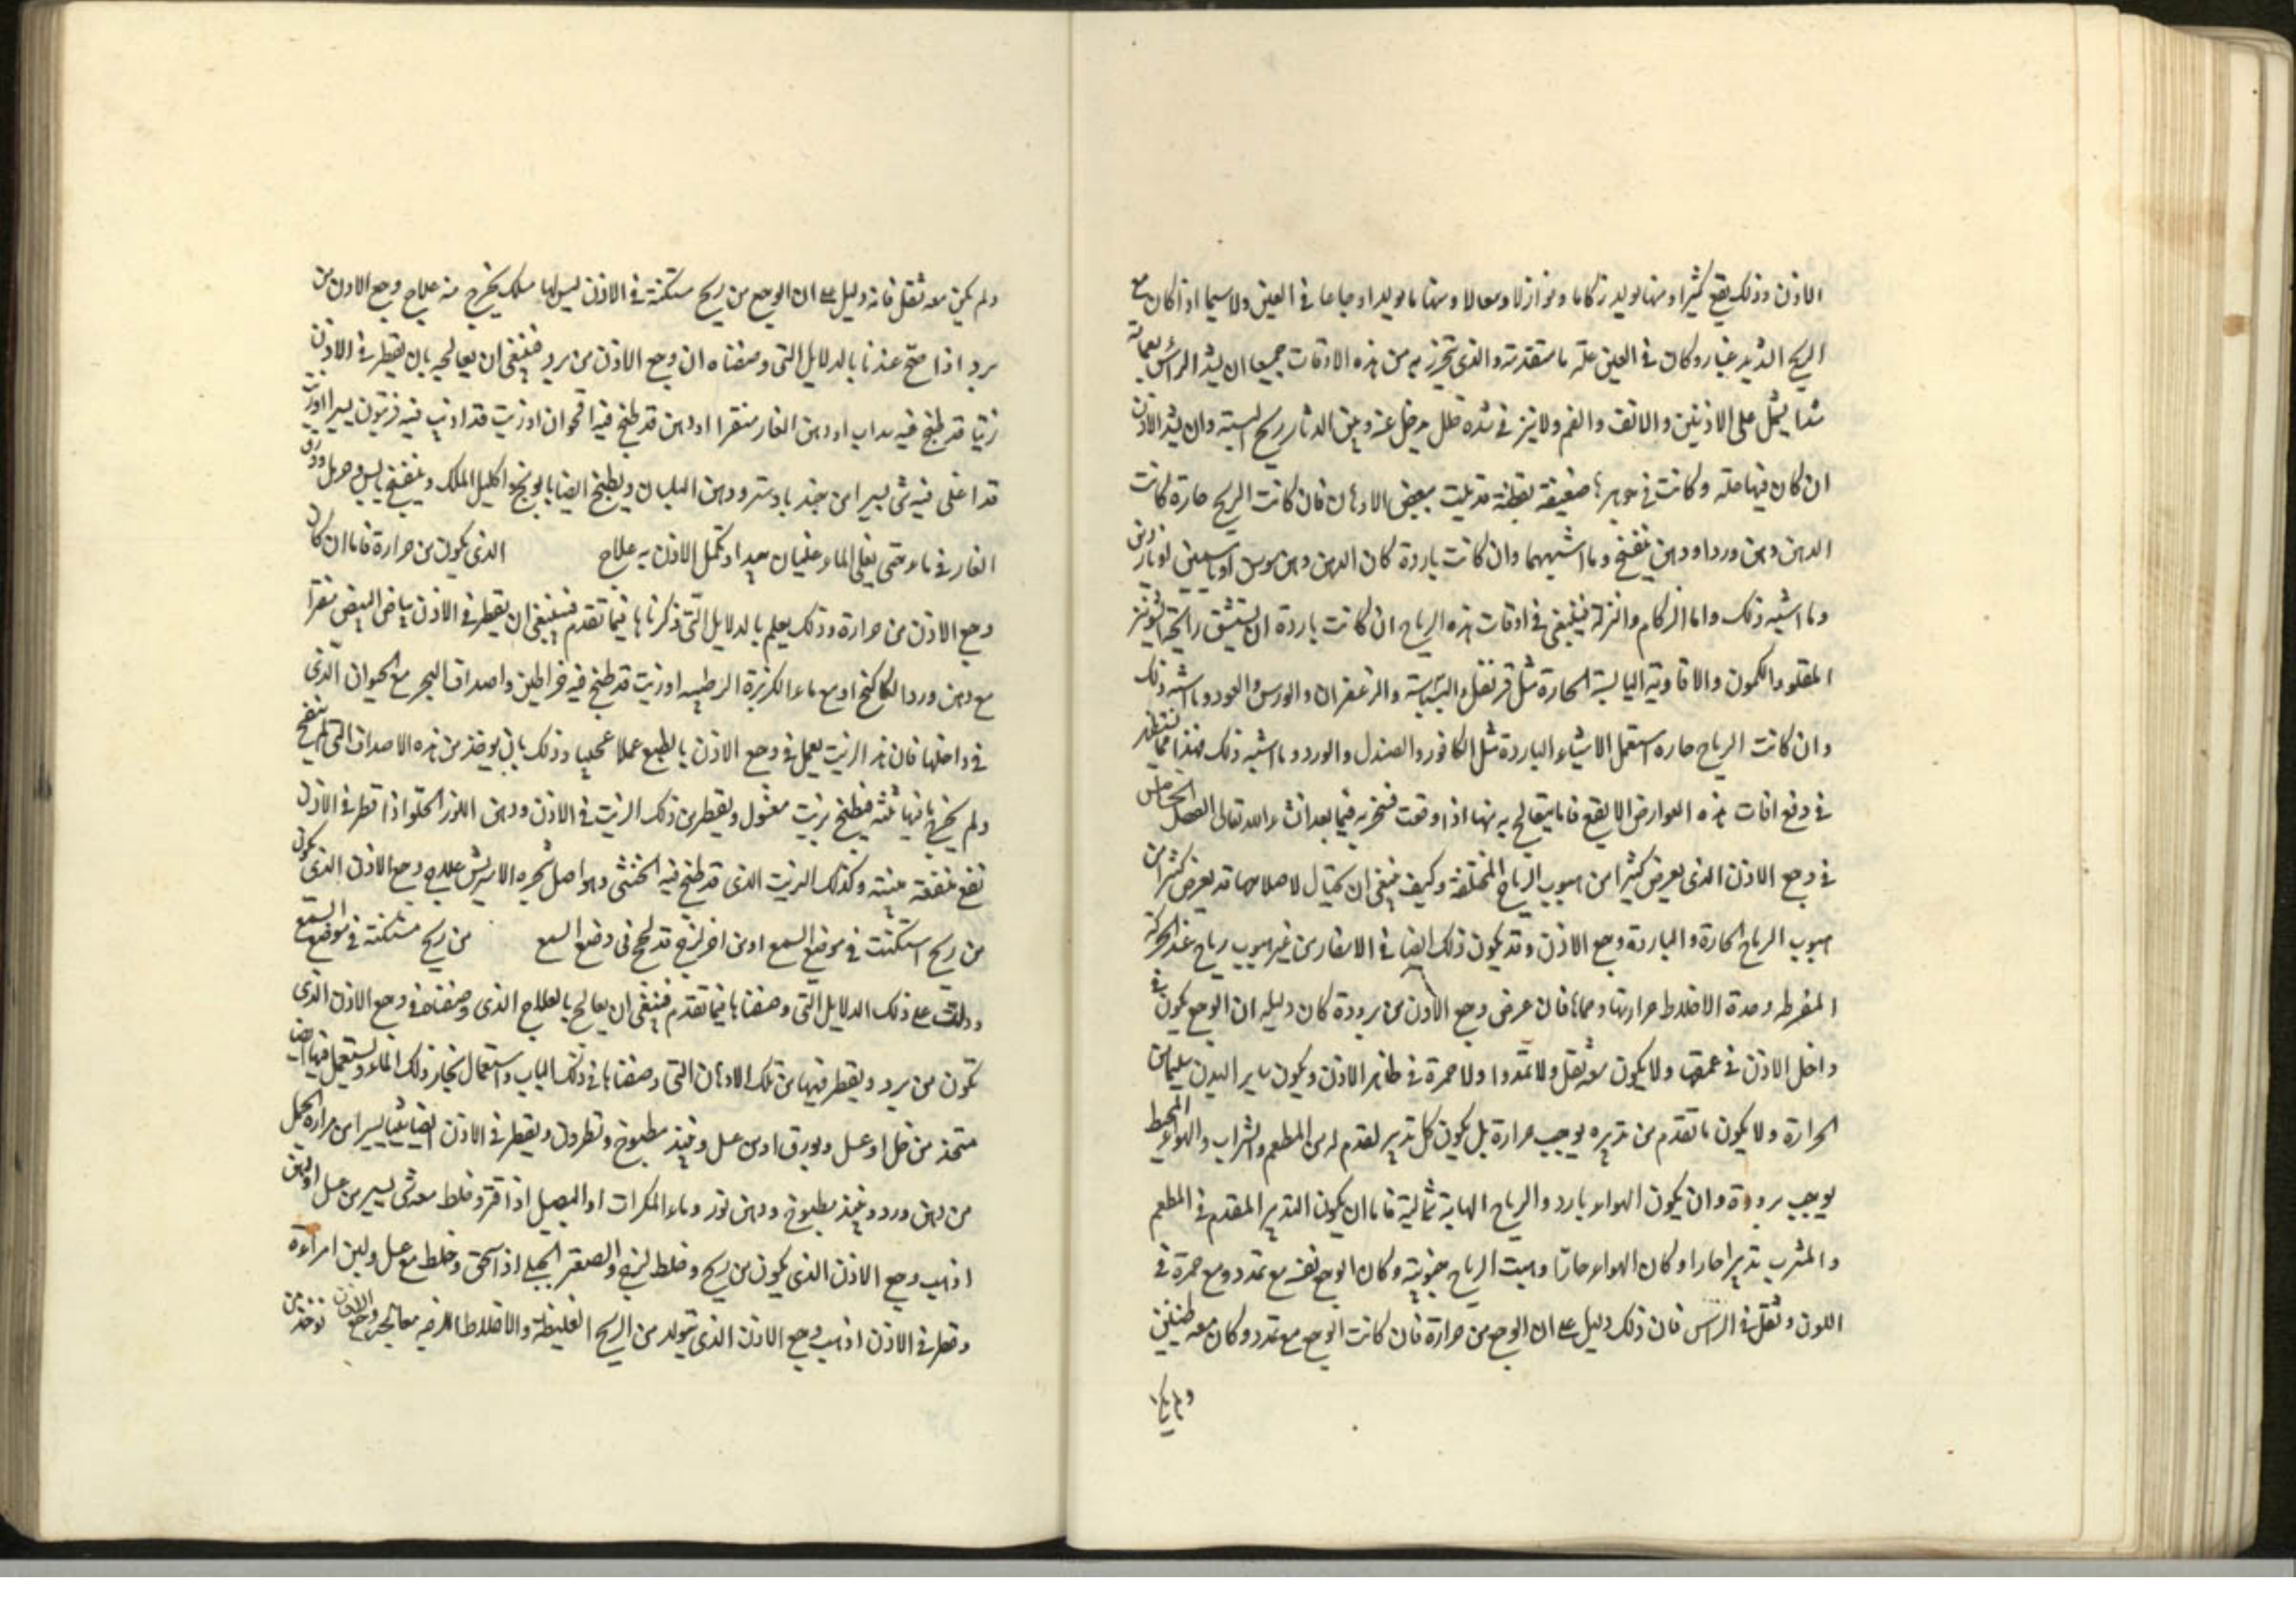 الاذن وذلك يقع كثيرا ومنها تولد زكاما ونوازلا وسعالا ومنها ما يولد اوجاعا في العين ولاسيما اذا كان مع
الريح الشديد غبار وكان في العين علة ما متقدمة والذي يتحرز به من هذه الاوقات جميعا ان يشد الراس بعمامة
شدا يشمل على الاذنين والانف والفم ولا يترك في شده خلل يدخل عنه وبين الدثار ريح البتة وان يشد الاذن
ان كان فيها علة وكانت في جوهرها ضعيفة بقطنة قد بلت ببعض الادهان فان كانت الريح حارة كانت
الدهن دهن ورد او دهن بنفسج وما اشبههما وان كانت باردة كان الدهن دهن سوسن او ياسمين او ناردين
وما اشبه ذلك واما الزكام والنزلة فينبغي في اوقات هذه الرياح ان كانت باردة ان يستنشق رائحة الشونيز
المقلو والكمون والافاويه اليابسة الحارة مثل قرنفل والبسباسة والزعفران والورس والعود وما اشبه ذلك
وان كانت الرياح حاره استعمل الاشياء الباردة مثل الكافور والصندل والورد وما اشبه ذلك فهذا مما ينتظر
في دفع افات هذه العوارض الا يقع فاما يتعالج به منها اذا وقعت فسنخبر به فيما بعد ان شاء الله تعالى الفصل الخامس
في وجع الاذن الذي يعرض كثيرا من هبوب الرياح المختلفة وكيف ينبغي ان يحتال لاصلاحها قد يعرض كثيرا من
هبوب الرياح الحارة والباردة وجع الاذن وقد يكون ذلك ايضا في الاسفار من غير هبوب رياح عند الحركة
المفرطه وحدة الاخلاط حرارتها وحماها فان عرض وجع الاذن من برودة كان دليله ان الوجع يكون في
داخل الاذن في عمقها ولا يكون معه ثقل ولا تمددا ولا حمرة في ظاهر الاذن ويكون ساير البدن سليما من
الحرارة ولا يكون ما تقدم من تدبيره يوجب حرارة بل يكون كل تدبير تقدم له من المطعم والشراب والهواء المحيط
يوجب برودة وان يكون الهواء بارد والرياح الهابة شمالية فاما ان يكون التدبير المقدم في المطعم
والمشرب تدبيرا حارا وكان الهواء حارا وهبت الرياح جنوبية وكان الوجع نفسه مع تمدد ومع حمرة في
اللون وثقل في الراس فان ذلك دليل على ان الوجع من حرارة فان كانت الوجع مع تمدد وكان معه طنين
ولم يكن
ولم يكن معه ثقل فانه دليل على ان الوجع من ريح مستكنة في الاذن ليس لها مسلك يخرج منه علاج وجع الاذن من
برد اذا صح عندنا بالدلايل التي وصفناه ان وجع الاذن من برد فينبغي ان يعالجه بان يقطر في الاذن
زيتا قد طبخ فيه سداب او دهن الغار منفرا او دهن قد طبخ فيه اقحوان او زيت قد اذيب فيه فربيون يسيرا او زيت
قد اغلى فيه شي يسيرا من جندبادستر ودهن البلسان ويطبخ ايضا بابونج واكليل الملك وبنفسج يابس وحرمل وورق
الغار في ماء حتى يغلى الماء غليان جيدا وتكمل الاذن به علاج الذي يكون من حرارة فاما ان كان
وجع الاذن من حرارة وذلك يعلم بالدلايل التي ذكرناها فيما تقدم فينبغي ان يقطر في الاذن بياض البيض مفترا
مع دهن ورد الكاكنج او مع ماء الكزبرة الرطبه او زيت قد طبخ فيه خراطين واصداف البحر مع الحيوان الذي
في داخلها فان هذا الزيت يعمل في وجع الاذن بالطبع عملا عجيبا وذلك بان يوخذ من هذه الاصداف التي لم ينفتح
ولم يخرج ما فيها فيطبخ بزيت مغسول ويقطر من ذلك الزيت في الاذن ودهن اللوز الحلو اذا قطر في الاذن
نفع منفعة بينة وكذلك الزيت الذي قد طبخ فيه الخنثى وهو اصل شجره الاشراس علاج وجع الاذن الذي يكون
من ريح استكنت في موضع السمع او من اخر لزج قد لحج في وضع السمع من ريح مستكنة في موضع السمع
ودلت على ذلك الدلايل التي وصفناها فيما تقدم فينبغي ان يعالج بالعلاج الذي وصفناه في وجع الاذن الذي
تكون من برد ويقطر فيها من تلك الادهان التي وصفناها في ذلك الباب واستعمال بخار ذلك الماء ويستعمل فيها ايضا
متخذ من خل او عسل وبورق او من عسل ونبيذ مطبوخ ونطرون ويقطر في الاذن ايضا شيا يسيرا من مراره الجمل
من دهن ورد ونبيذ مطبوخ ودهن لوز وماء الكراث او البصل اذا فتر وخلط معه شي يسير من عسل او لبن
اذهب وجع الاذن الذي يكون من ريح وخلط لزج والصعتر الجبلي اذا سحق وخلط مع عسل ولبن امراءه
وقطر في الاذن اذهب وجع الاذن الذي يتولد من الريح الغليظة والاخلاط اللزجه معالجه وجع الاذن توخذ من